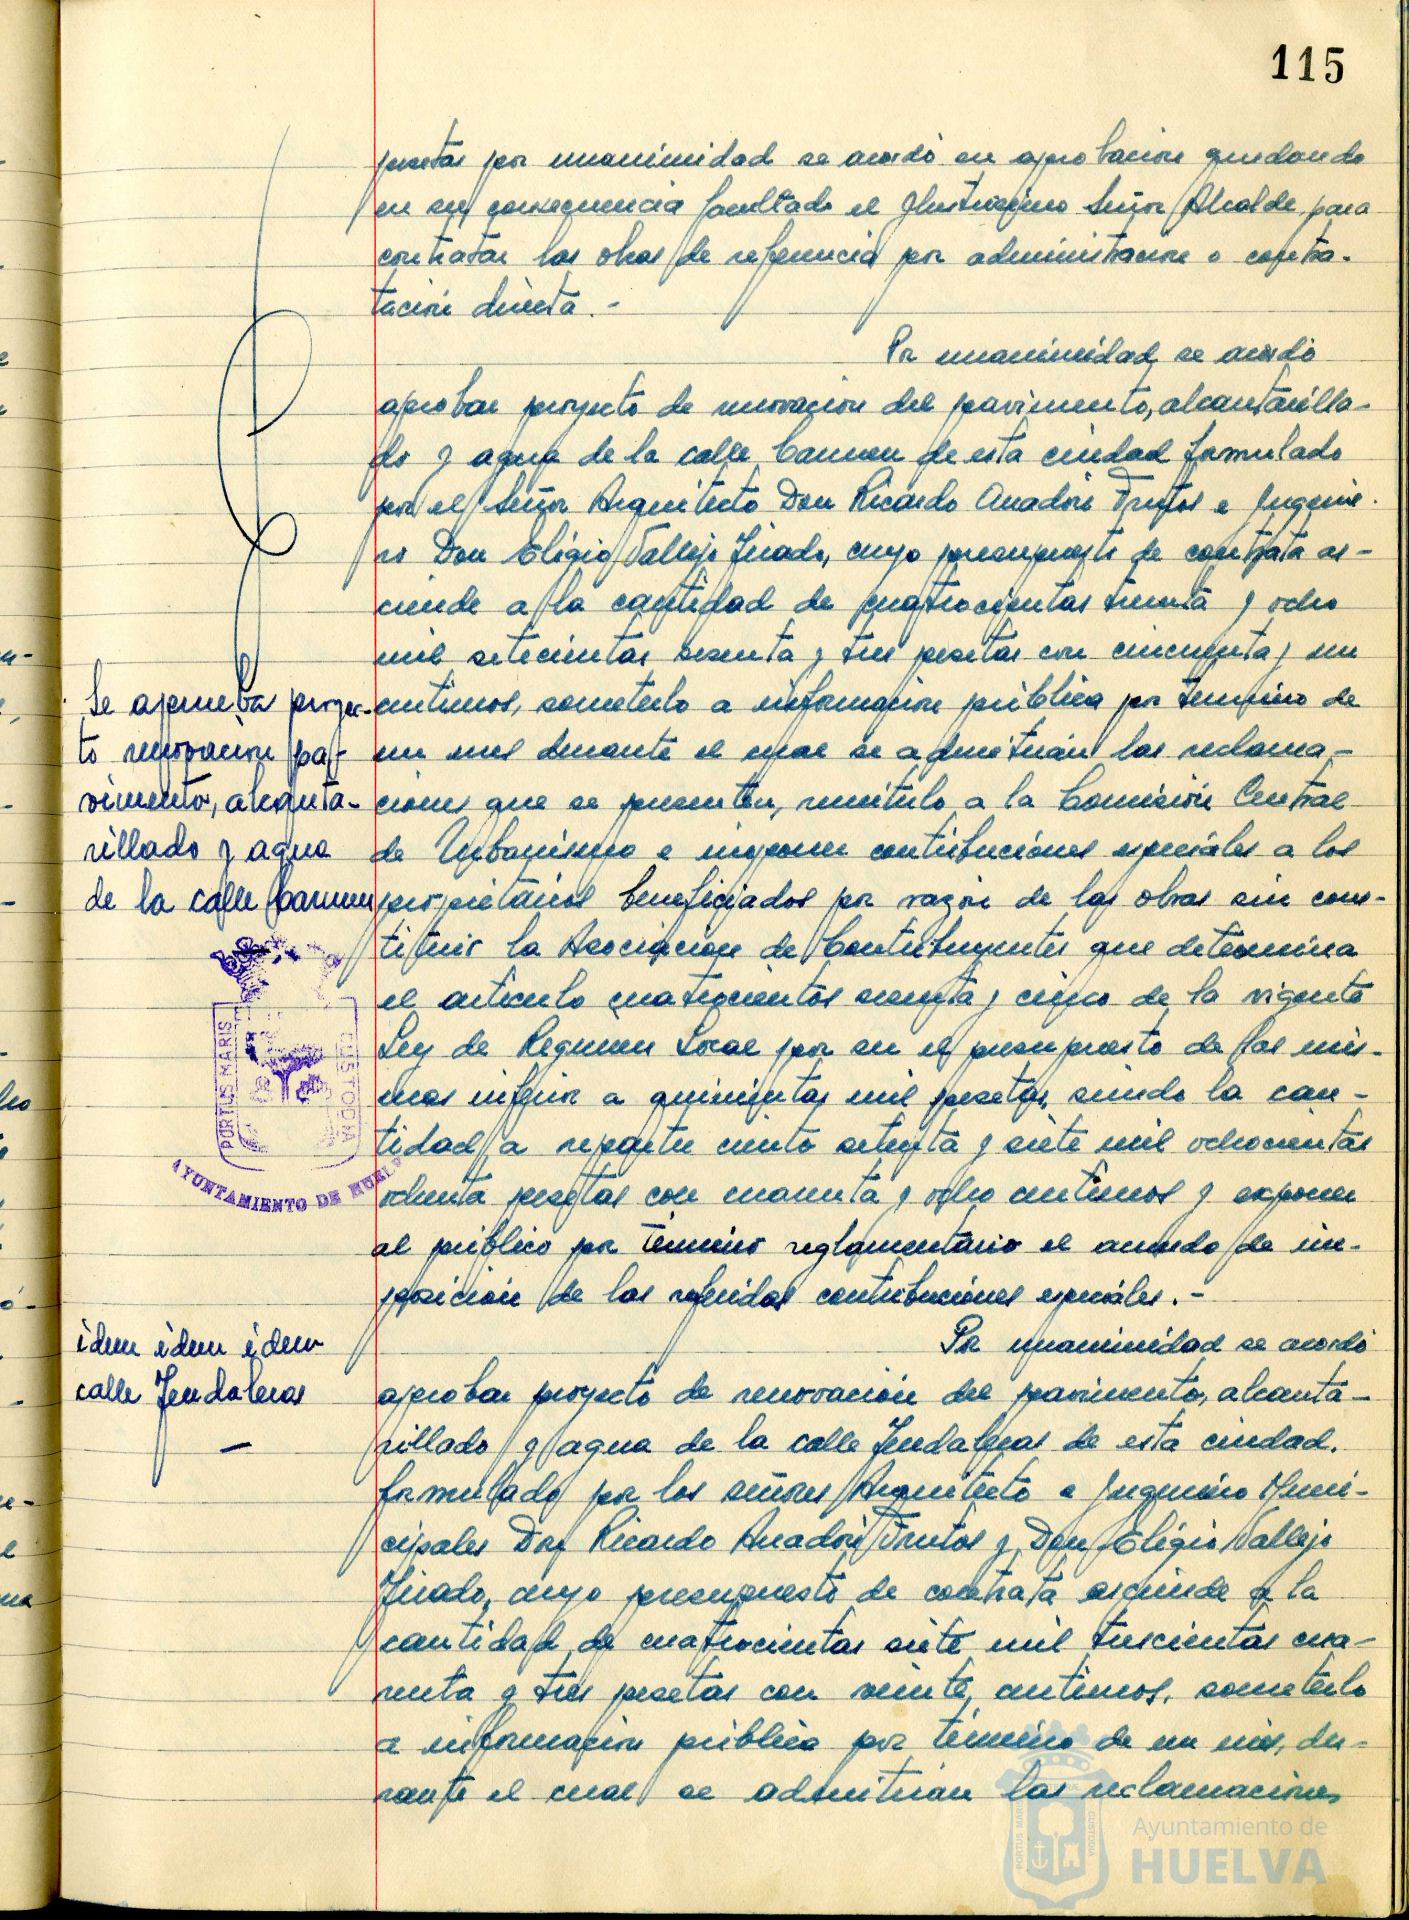 115
pesetas por unanimidad se acordó su aprobación quedando
en su consecuencia facultado el Ilustrísimo Señor Alcalde para
contratar las obras de referencia por administración o contra-
tación directa.-
Por unanimidad se acordó
aprobar proyecto de renovación del pavimento, alcantarilla-
do y agua de la calle Carmen de esta ciudad formulado
por el Señor Arquitecto Don Ricardo Anadón Frutos e Ingenie-
ro Don Eligio Vallejo Jurado, cuyo presupuesto de contrata as-
ciende a la cantidad de cuatrocientas treinta y ocho
mil setecientas sesenta y tres pesetas con cincuenta y un
Se aprueba proyec-
to renovación pa-
vimento, alcanta-
rillado y agua
de la calle Carmen
centimos, someterlo a información pública por termino de
un mes durante el cual se admitirán las reclama-
ciones que se presenten, remitirlo a la Comisión Central
de Urbanismo e imponer contribuciones especiales a los
propietarios beneficiados por razón de las obras sin cons-
tituir la Asociacion de Contribuyentes que determina
el artículo cuatrocientos sesenta y cinco de la vigente
Ley de Regimen Local por ser el presupuesto de las mis-
mas inferior a quinientas mil pesetas, siendo la can-
tidad a repartir ciento setenta y siete mil ochocientas
ochenta pesetas con cuarenta y ocho centimos y exponer
al público por término reglamentario el acuerdo de im-
posición de las referidas contribuciones especiales.-
PORTUS MARIS CUSTODIA
AYUNTAMIENTO DE HUELVA
idem idem idem
calle Jendaleras
Por unanimidad se acordó
aprobar proyecto de renovación del pavimento, alcanta-
rillado y agua de la calle Jendaleras de esta ciudad.
formulado por los señores Arquitecto e Ingeniero Muni-
cipales Don Ricardo Anadón Frutos y Don Eligio Vallejo
Jurado, cuyo presupuesto de contrata asciende a la
cantidad de cuatrocientas siete mil trescientas cua-
renta y tres pesetas con veinte centimos, someterlo
a información pública por término de un mes, du-
rante el cual se admitirán las reclamaciones
PORTUS MARIS CUSTODIA
Ayuntamiento de
HUELVA